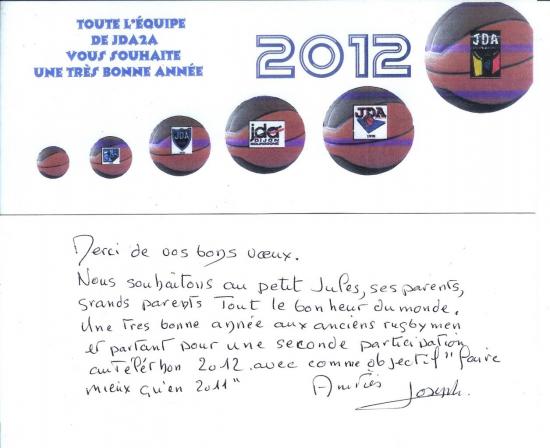 TOUTE L'ÉQUIPE
DE JDA2A
VOUS SOUHAITE
UNE TRÈS BONNE ANNÉE
2012
JDA
JDA
jda
DIJON
JDA
Merci de vos bons vœux.
Nous souhaitons au petit Jules, ses parents,
grands parents Tout le bonheur du monde.
Une Tres bonne année aux anciens rugbymen
et partant pour une seconde participation
au Téléthon 2012 avec comme objectif "faire
mieux qu'en 2011"
Amitiés
Joseph.